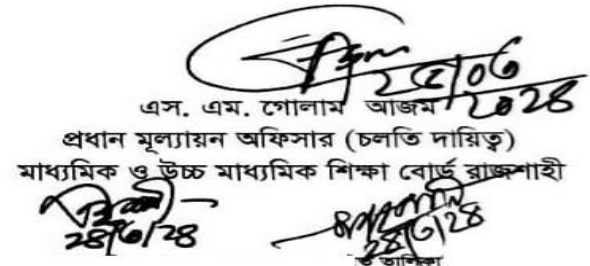 ২৫/০৬
২০২৪
এস. এম. গোলাম আজম
প্রধান মূল্যায়ন অফিসার (চলতি দায়িত্ব)
মাধ্যমিক ও উচ্চ মাধ্যমিক শিক্ষা বোর্ড রাজশাহী
২৪/৬/২৪
২৪/৬/২৪